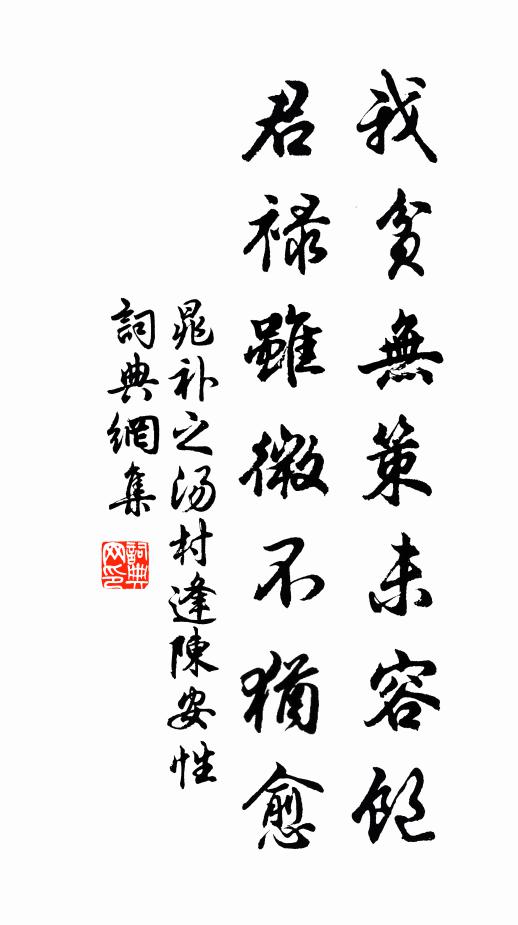 我貧無策未容飽
君祿雖微不猶愈
晁补之汤村逢陳安性
詞典網集
詞典网印